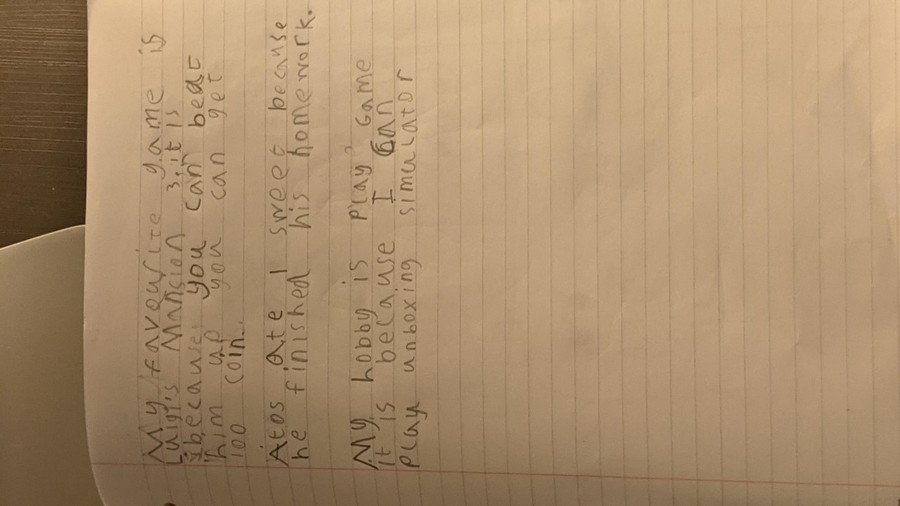 My favourite game is
Luigi's Mansion 3. it is
because you can beat
him up you can get
100 coin..
Atos ate 1 sweet because
he finished his homework.
My hobby is play game
it is because I can
play unboxing simulator